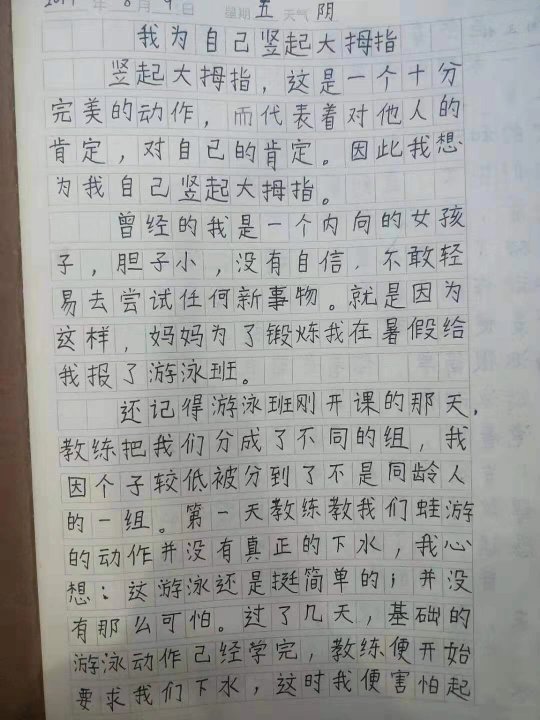 年 8月9日 星期 五 天气 阴
我为自己竖起大拇指
竖起大拇指，这是一个十分
完美的动作，而代表着对他人的
肯定，对自己的肯定。因此我想
为我自己竖起大拇指。
曾经的我是一个内向的女孩
子，胆子小，没有自信，不敢轻
易去尝试任何新事物。就是因为
这样，妈妈为了锻炼我在暑假给
我报了游泳班。
还记得游泳班刚开课的那天，
教练把我们分成了不同的组，我
因个子较低被分到了不是同龄人
的一组。第一天教练教我们蛙游
的动作并没有真正的下水，我心
想：这游泳还是挺简单的；并没
有那么可怕。过了几天，基础的
游泳动作已经学完，教练便开始
要求我们下水，这时我便害怕起